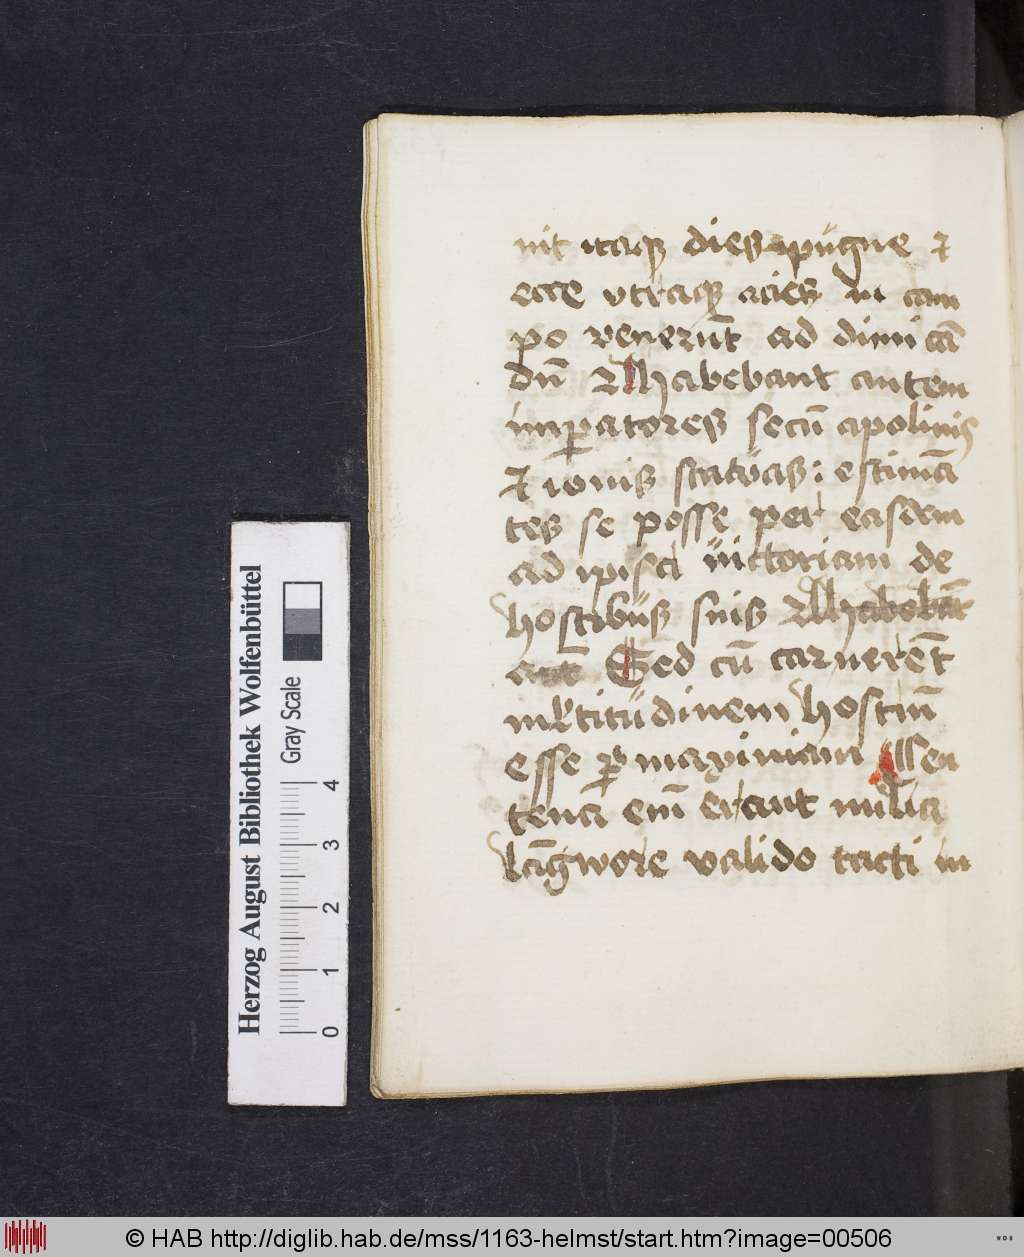 nit itaqꝫ dies pügne ⁊
ecce vtraqꝫ acies in cam
po venerūt ad dimicā
dū Habebant autem
imꝑatores secū apolinis
⁊ iouis statuas: estimā
tes se posse per easdem
ad ipisci uictoriam de
hostibüs suis Habebāt
Sed cū carnerēt
mltitüdinem hostiū
esse ꝑ maximam Sen
tena em̄ erant milia
lāgwore valido tacti in
Herzog August Bibliothek Wolfenbüttel
Gray Scale
0 1 2 3 4
© HAB http://diglib.hab.de/mss/1163-helmst/start.htm?image=00506